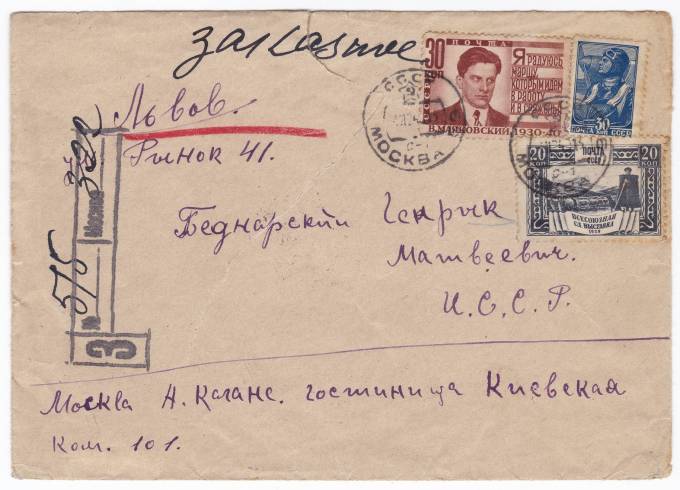 заказное
30 КОП
ПОЧТА
СССР
Я РАДУЮСЬ
МАРШУ,
КОТОРЫМ ИДЕМ
В РАБОТУ
И В СРАЖЕНЬЯ
В. МАЯКОВСКИЙ 1930-40
30
ПОЧТА СССР
20 КОП
ПОЧТА
СССР
20 КОП
ВСЕСОЮЗНАЯ
С.Х. ВЫСТАВКА
1939
СССР
МОСКВА
СССР
МОСКВА
Львов.
Рынок 41.
Беднарский Генрык
Матвеевич.
И.С.С.Р.
З
№ 575
Москва 522
Москва Н. Каганс. гостиница Киевская
Ком. 101.